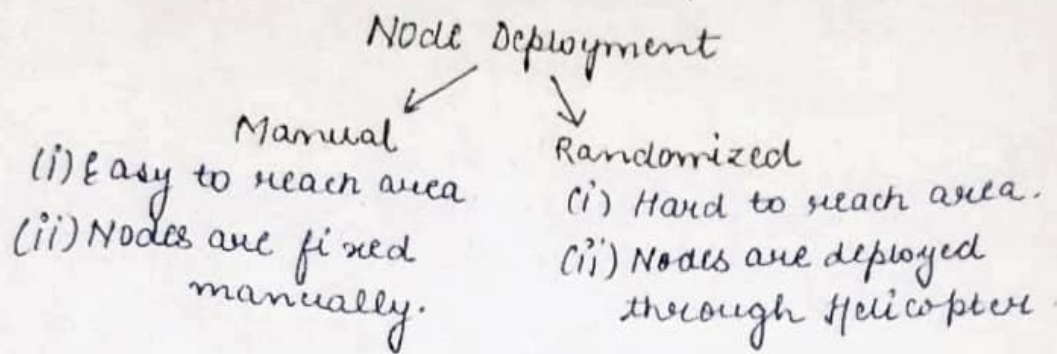 Node Deployment
Manual
(i) Easy to reach area
(ii) Nodes are fixed
manually.
Randomized
(i) Hard to reach area.
(ii) Nodes are deployed
through Helicopter